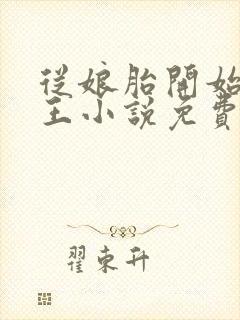 從娘胎開始
王小說免費
翟東升